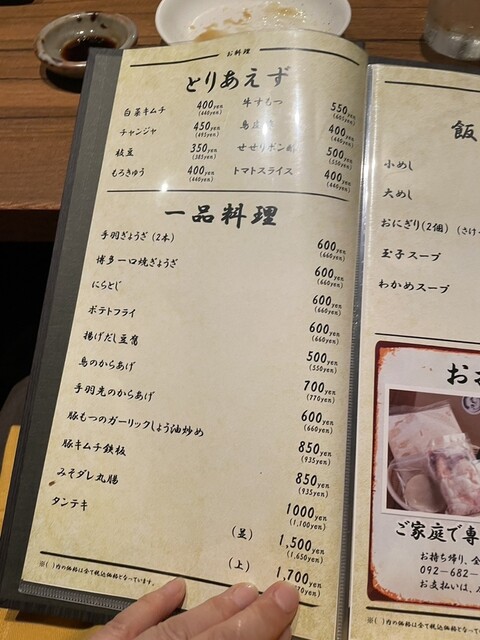 お料理
とりあえず
白菜キムチ 400yen (440yen)
牛すもつ 550yen (605yen)
チャンジャ 450yen (495yen)
400yen (440yen)
枝豆 350yen (385yen)
せせりポン酢 500yen (550yen)
もろきゅう 400yen (440yen)
トマトスライス 400yen (440yen)
一品料理
手羽ぎょうざ (2本) 600yen (660yen)
博多一口焼ぎょうざ 600yen (660yen)
にらとじ 600yen (660yen)
ポテトフライ 600yen (660yen)
揚げだし豆腐 500yen (550yen)
鳥のからあげ 700yen (770yen)
手羽先のからあげ 600yen (660yen)
豚もつのガーリックしょう油炒め 850yen (935yen)
豚キムチ鉄板 850yen (935yen)
みそダレ丸腸 1000yen (1,100yen)
タンテキ (並) 1,500yen (1,650yen)
(上) 1,700yen
※( )内の価格は全て税込価格となっています。
飯
小めし
大めし
おにぎり(2個) (さけ
玉子スープ
わかめスープ
お
ご家庭で専
お持ち帰り、全
092-682-
お支払いは、
※( )内の価格は全て税込価格と